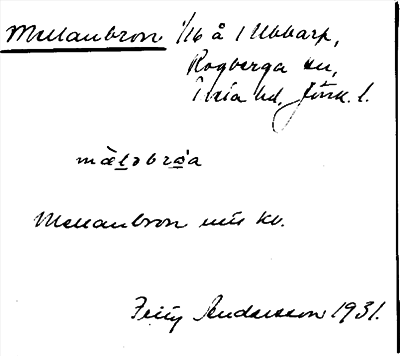 Mellanbron 1/16 å 1 Ubbarp,
Rogberga sn,
Tveta hd, Jönk. l.
mäl̲əbrå̲a
Mellanbron kv.
Andersson 1931.